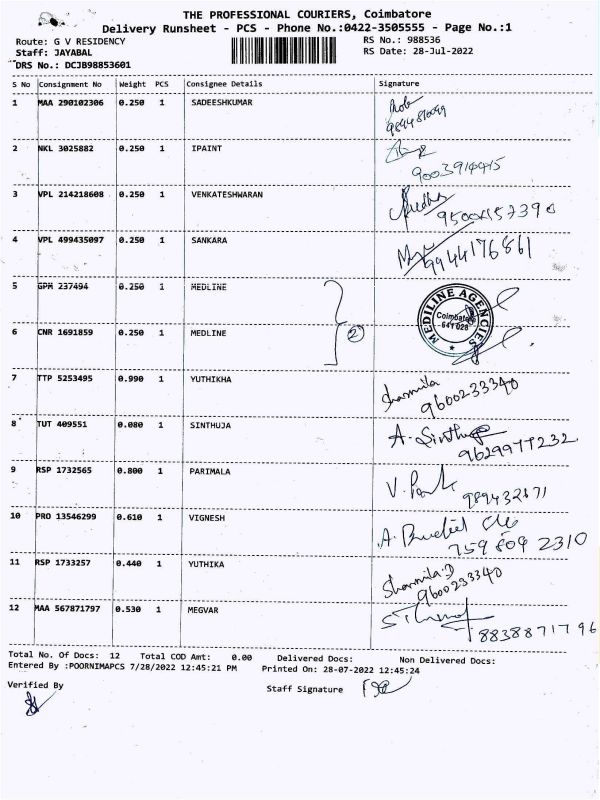 THE PROFESSIONAL COURIERS, Coimbatore
Delivery Runsheet - PCS - Phone No.:0422-3505555 - Page No.:1
Route: G V RESIDENCY RS No.: 988536
Staff: JAYABAL RS Date: 28-Jul-2022
DRS No.: DCJB98853601
S No Consignment No Weight PCS Consignee Details Signature
1 MAA 290102306 0.250 1 SADEESHKUMAR
2 NKL 3025882 0.250 1 IPAINT
9003914415
3 VPL 214218608 0.250 1 VENKATESHWARAN
4 VPL 499435097 0.250 1 SANKARA
9944176861
5 GPM 237494 0.250 1 MEDLINE
MEDILINE AGENCIES
Coimbatore
641 028
2
6 CNR 1691859 0.250 1 MEDLINE
7 TTP 5253495 0.990 1 YUTHIKHA Sharmila
9600233340
8 TUT 409551 0.080 1 SINTHUJA A. Sinthuja
9629977232
9 RSP 1732565 0.800 1 PARIMALA
989432671
10 PRO 13546299 0.610 1 VIGNESH
759 809 2310
11 RSP 1733257 0.440 1 YUTHIKA Sharmila.D
9600233340
12 MAA 567871797 0.530 1 MEGVAR
8838871796
Total No. Of Docs: 12 Total COD Amt: 0.00 Delivered Docs: Non Delivered Docs:
Entered By :POORNIMAPCS 7/28/2022 12:45:21 PM Printed On: 28-07-2022 12:45:24
Verified By Staff Signature